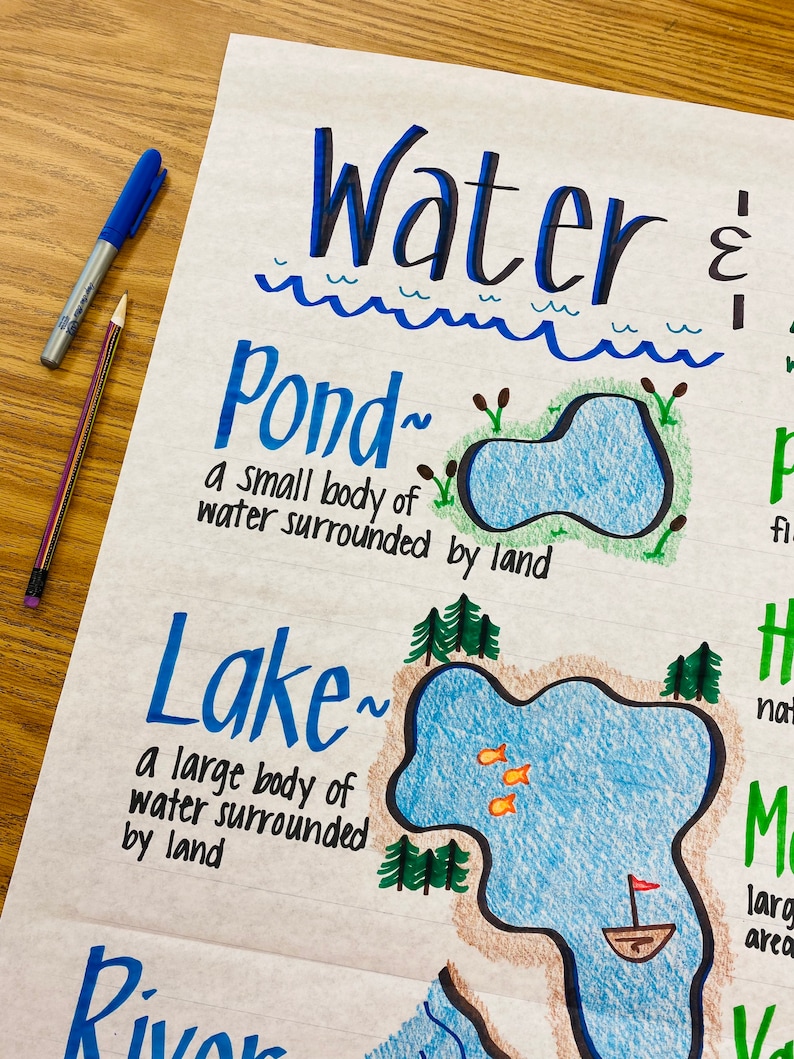 Water &
Pond~
a small body of
water surrounded by land
Lake~
a large body of
water surrounded
by land
River